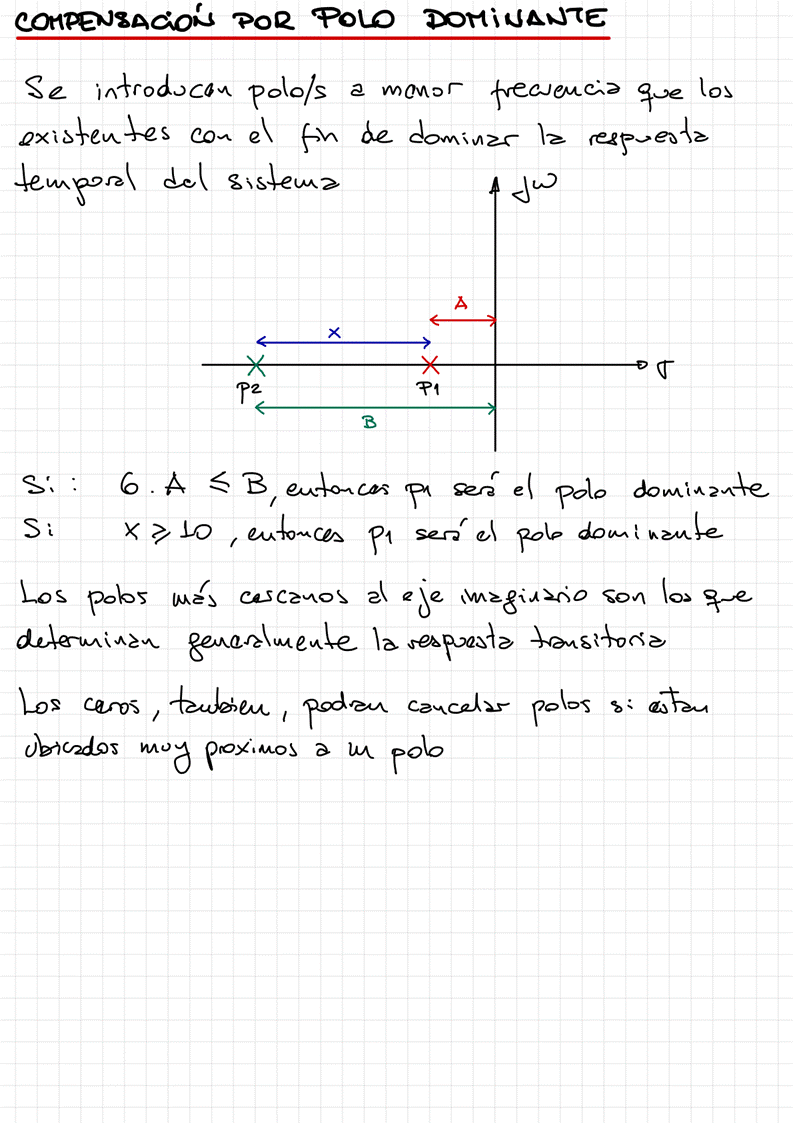 COMPENSACIÓN POR POLO DOMINANTE
Se introducen polo/s a menor frecuencia que los
existentes con el fin de dominar la respuesta
temporal del sistema
jω
A
x
σ
P2
P1
B
Si: 6.A ≤ B, entonces p1 será el polo dominante
Si x ≥ 10, entonces p1 será el polo dominante
Los polos más cercanos al eje imaginario son los que
determinan generalmente la respuesta transitoria
Los ceros, tambien, podran cancelar polos si estan
ubicados muy proximos a un polo